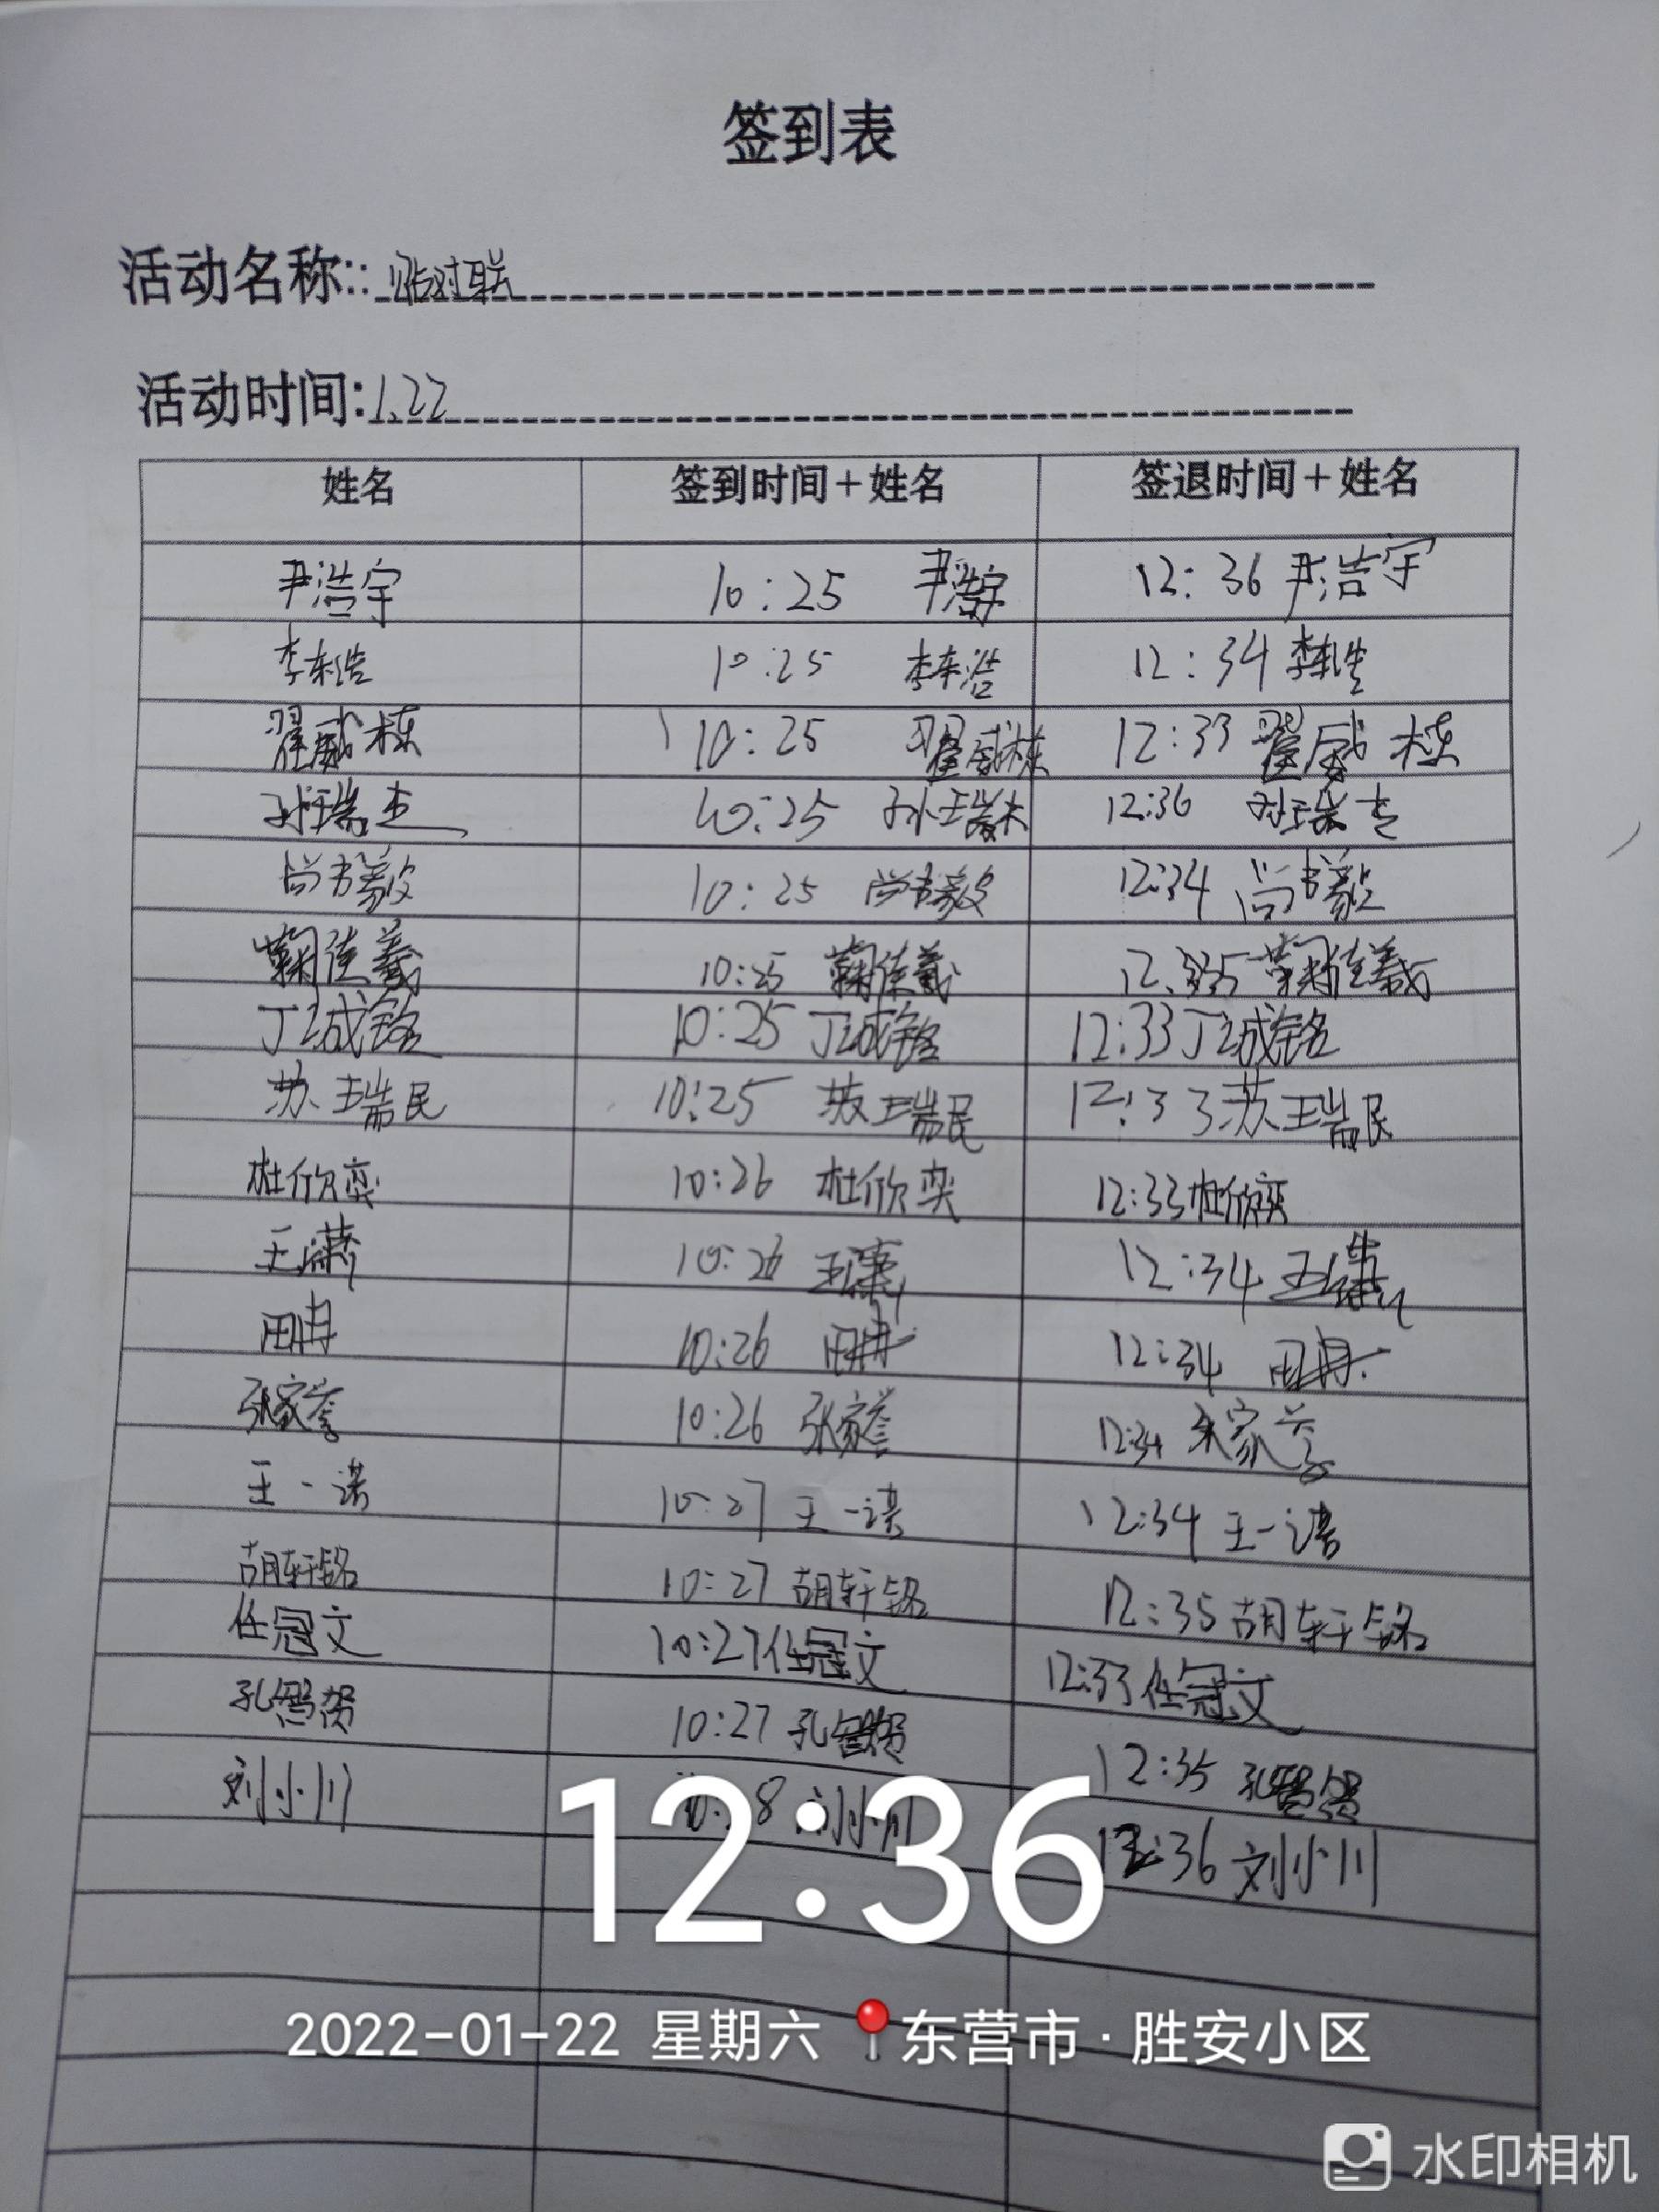 签到表
活动名称::贴对联
活动时间:1.22
姓名 签到时间+姓名 签退时间+姓名
尹浩宇 10:25 尹浩宇 12:36 尹浩宇
李东浩 10:25 李东浩 12:34 李东浩
翟威栋 10:25 翟威栋 12:33 翟威栋
孙瑞杰 10:25 孙瑞杰 12:36 孙瑞杰
尚书毅 10:25 尚书毅 12:34 尚书毅
鞠佳羲 10:25 鞠佳羲 12:35 鞠佳羲
丁诚铭 10:25 丁诚铭 12:33 丁诚铭
苏瑞民 10:25 苏瑞民 12:33 苏瑞民
杜欣奕 10:26 杜欣奕 12:33 杜欣奕
王潇 10:26 王潇 12:34 王潇
田冉 10:26 田冉 12:34 田冉
张家誉 10:26 张家誉 12:34 张家誉
王一诺 10:27 王一诺 12:34 王一诺
胡轩铭 10:27 胡轩铭 12:35 胡轩铭
任冠文 10:27 任冠文 12:33 任冠文
孔智贺 10:27 孔智贺 12:35 孔智贺
刘小川 刘小川 12:36 刘小川
12:36
2022-01-22 星期六 东营市·胜安小区
水印相机